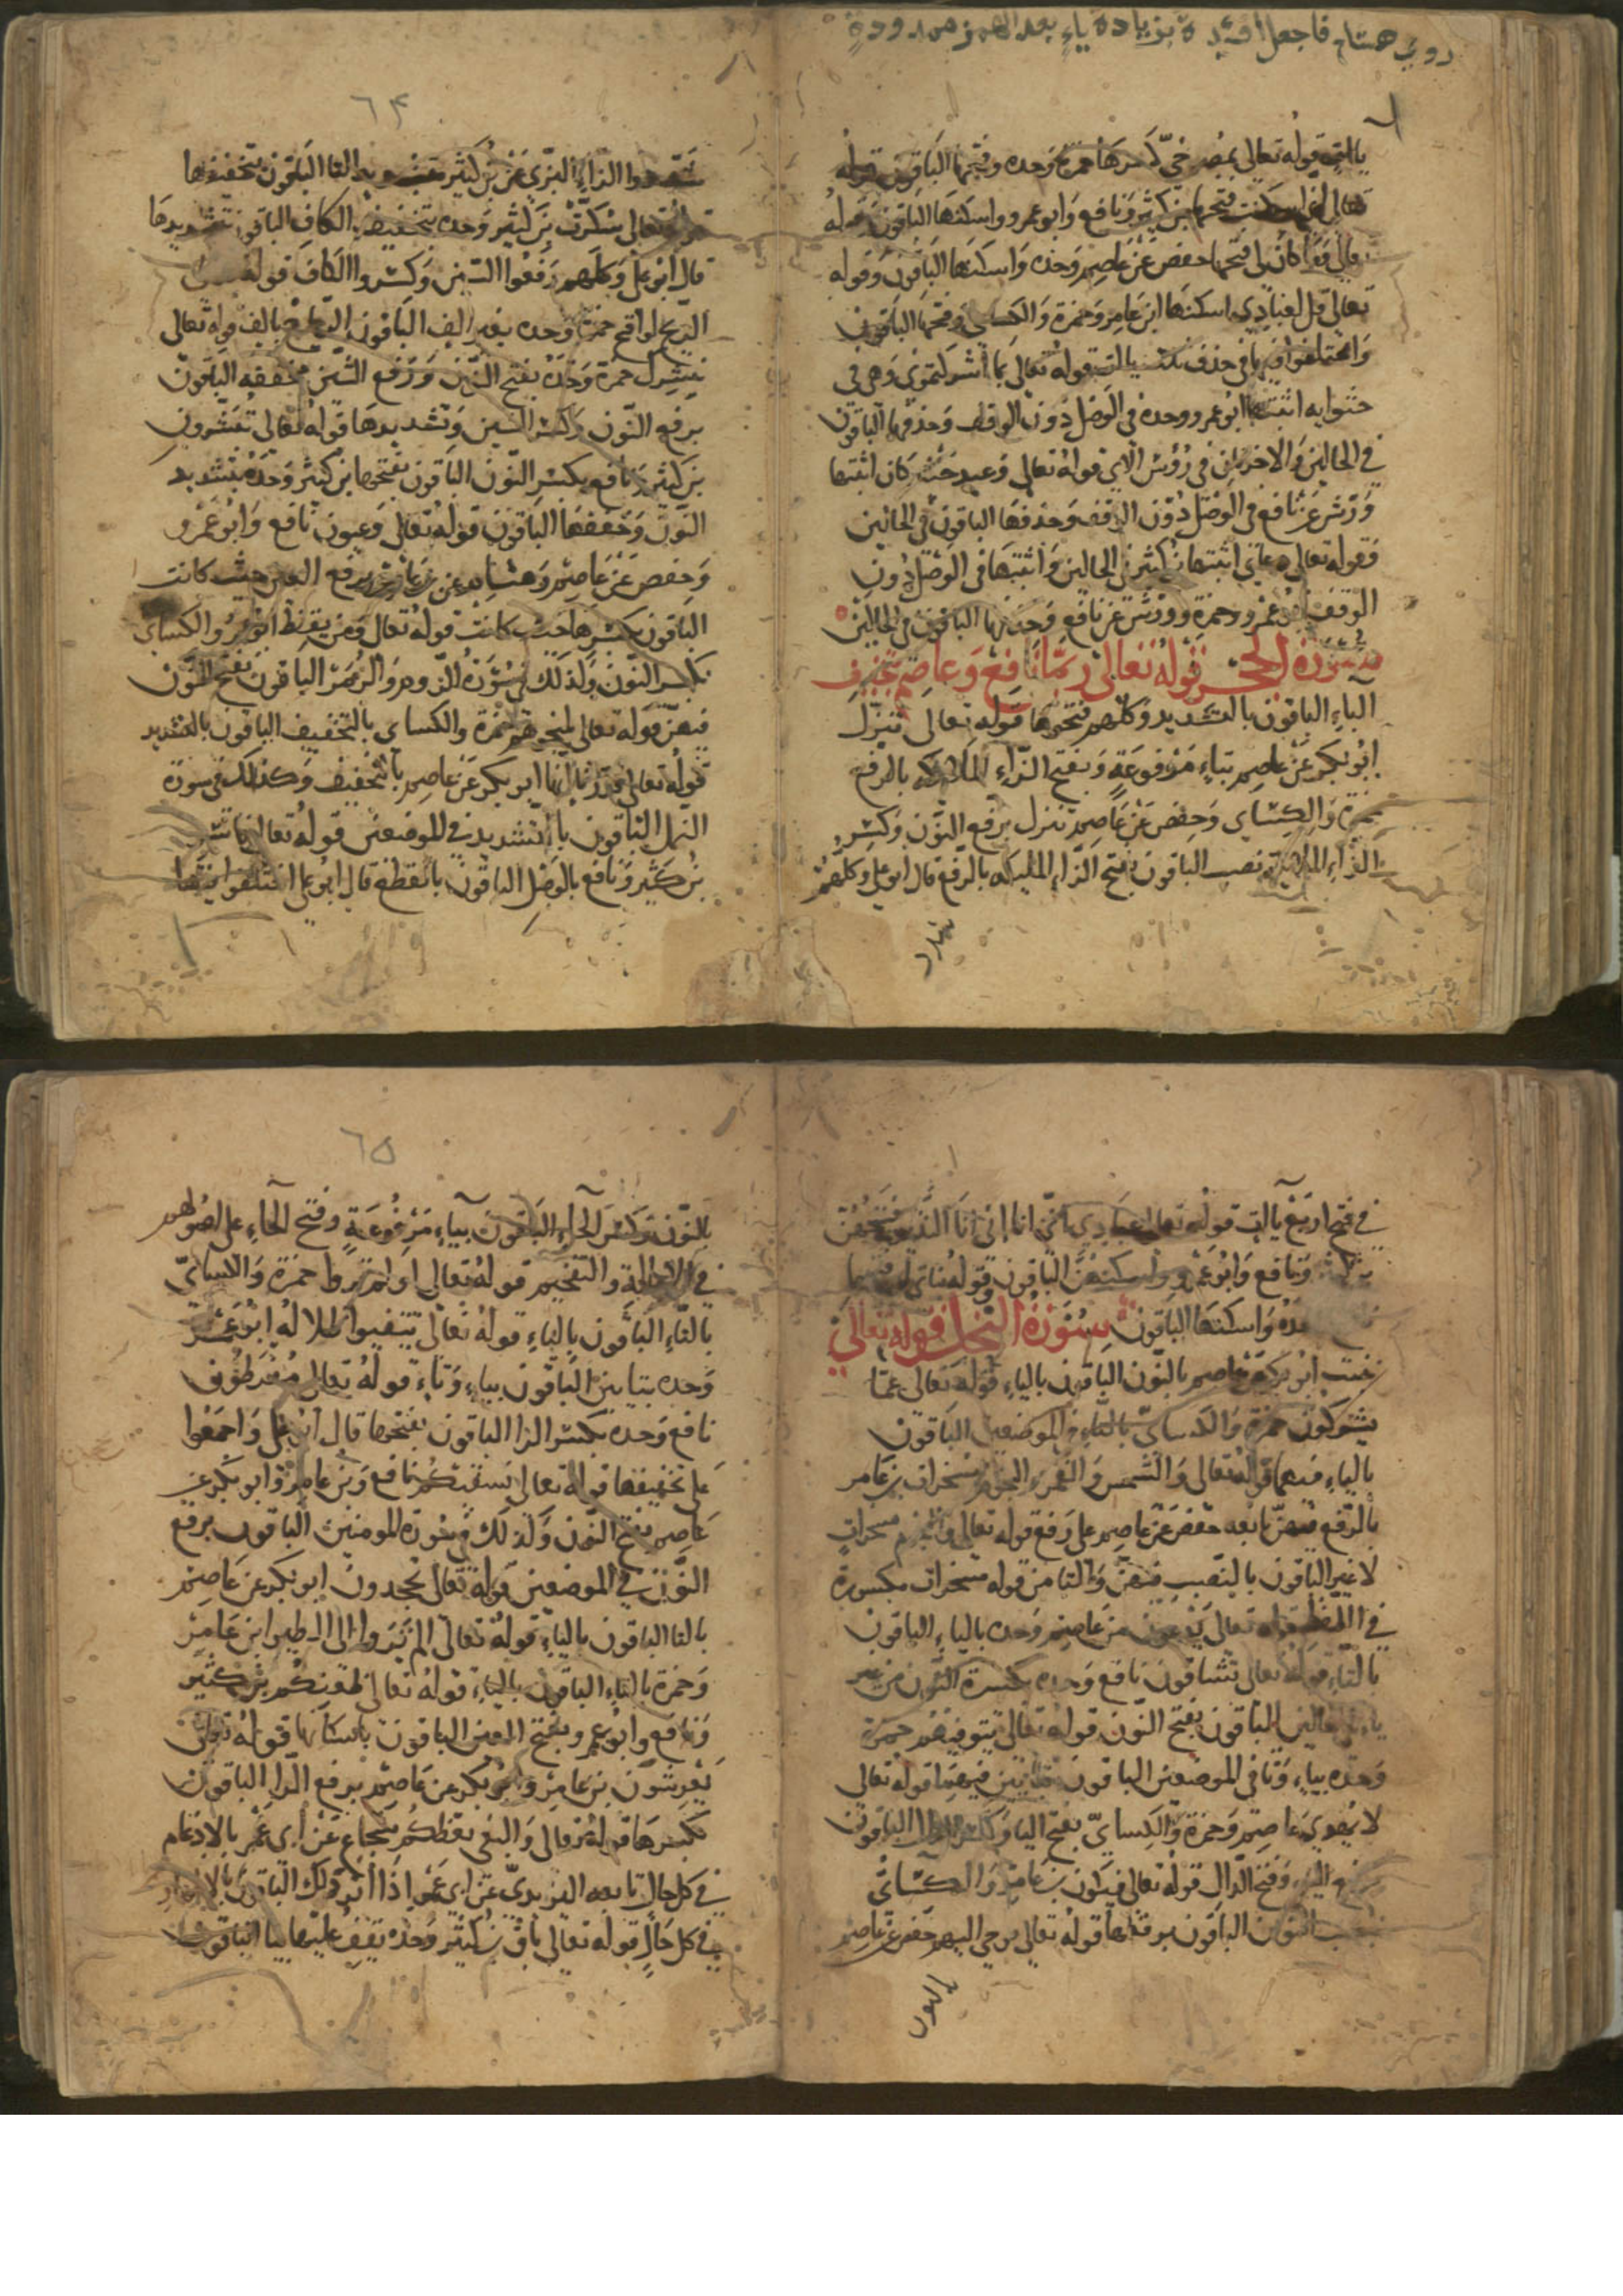 روى هشام فاجعل أفئدة بزيادة ياء بعد الهمز ممدودة
ياات قوله تعالى بمصرخي كسرها حمزة وحده وفتحها الباقون قوله
تعالى إني اسكنت فتحها بن كثير ونافع وابو عمرو واسكنها الباقون وقوله
تعالى وما كان لي فتحها حفص عن عاصم وحده واسكنها الباقون وقوله
تعالى قل لعبادي اسكنها ابن عامر وحمزة والكساي وفتحها الباقون
واختلفوا فيها في حذف ثلث ياات قوله تعالى بما أشركتموني وهي في
حشوايه اثبتها ابو عمرو وحده في الوصل دون الوقف وحذفها الباقون
في الحالين والاخريان في رؤس الاي قوله تعالى وعيد حيث كان اثبتها
ورش عن نافع في الوصل دون الوقف وحذفها الباقون في الحالين
وقوله تعالى دعائي اثبتها بن كثير في الحالين واثبتها في الوصل دون
الوقف ابو عمرو وحمزة وورش عن نافع وحذفها الباقون في الحالين
سورة الحجر قوله تعالى ربما نافع وعاصم بتخفيف
الباء الباقون بالتشديد وكلهم فتحوها قوله تعالى تنزل
ابو بكر عن عاصم بتاء مرفوعة وبفتح الزاء الملائكة بالرفع
حمزة والكساي وحفص عن عاصم ننزل برفع النون وكسر
الزاء الملائكة نصب الباقون بفتح الزاء المليكه بالرفع قال ابو علي وكلهم
شددوا
٦٤
شددوا الزاء البزي عن بن كثير بتشديد التا الباقون بتخفيفها
قوله تعالى سكرت بن كثير وحده بتخفيف الكاف الباقون بتشديدها
قال ابو علي وكلهم رفعوا السين وكسروا الكاف قوله
الريح لواقح حمزة وحده بغير الف الباقون الرياح بالف قوله تعالى
نبشرك حمزة وحده بفتح النون ورفع الشين مخففه الباقون
برفع النون وكسر الشين وتشديدها قوله تعالى تبشرون
بن كثير ونافع بكسر النون الباقون بفتحها بن كثير وحده بتشديد
النون وخففها الباقون قوله تعالى وعيون نافع وابو عمرو
وحفص عن عاصم وهشام عن بن عامر برفع العين حيث كانت
الباقون بكسرها حيث كانت قوله تعالى ومن يقنط ابو عمرو والكساي
بكسر النون وكذلك في سورة الروم والزمر الباقون بفتح النون
فيهن قوله تعالى لمنجوهم حمزة والكساي بالتخفيف الباقون بالتشديد
قوله تعالى قدرنا انها ابو بكر عن عاصم بالتخفيف وكذلك في سورة
النمل الباقون بالتشديد في الموضعين قوله تعالى فاسر
بن كثير ونافع بالوصل الباقون بالقطع قال ابو علي اختلفوا فيها
في فتح اربع ياات قوله تعالى عبادي اني انا اني انا النذير فتحهن
بن كثير ونافع وابو عمرو واسكنهن الباقون وقوله بناتي ان فتحها
وحده واسكنها الباقون سورة النحل قوله تعالى
ننبت ابو بكر عن عاصم بالنون الباقون بالياء قوله تعالى عما
يشركون حمزة والكساي بالتاء في الموضعين الباقون
بالياء فيهما قوله تعالى والشمس والقمر والنجوم مسخرات بن عامر
بالرفع فيهن تابعه حفص عن عاصم على رفع قوله تعالى والنجوم مسخرات
لا غير الباقون بالنصب فيهن والتا من قوله مسخرات مكسورة
في اللفظ قوله تعالى يدعون عاصم وحده بالياء الباقون
بالتاء قوله تعالى تشاقون نافع وحده بكسرة النون من غير
ياء في الحالين الباقون بفتح النون قوله تعالى تتوفيهم حمزة
وحده بياء وتا في الموضعين الباقون بتاءين فيهما قوله تعالى
لا يهدي عاصم وحمزة والكساي بفتح اليا وكسر الدال الباقون
برفع الياء وفتح الدال قوله تعالى فيكون بن عامر والكساي
بنصب النون الباقون برفعها قوله تعالى نوحي اليهم حفص عن عاصم
بالنون
٦٥
بالنون وكسر الحاء الباقون بياء مرفوعة وفتح الحاء على اصولهم
في الامالة والتفخيم قوله تعالى اولم تروا حمزة والكساي
بالتاء الباقون بالياء قوله تعالى تتفيوا ظلاله ابو عمرو
وحده بتاءين الباقون بياء وتاء قوله تعالى مفرطون
نافع وحده بكسر الرا الباقون بفتحها قال ابو علي واجمعوا
على تخفيفها قوله تعالى نسقيكم نافع وبن عامر وابو بكر عن
عاصم بفتح النون وكذلك في سورة المومنين الباقون برفع
النون في الموضعين قوله تعالى تجحدون ابو بكر عن عاصم
بالتا الباقون بالياء قوله تعالى الم تروا الى الطير ابن عامر
وحمزة بالتاء الباقون بالياء قوله تعالى ظعنكم بن كثير
ونافع وابو عمرو بفتح العين الباقون باسكانها قوله تعالى
يعرشون بن عامر وابو بكر عن عاصم برفع الرا الباقون
بكسرها قوله تعالى والبغي يعظكم شجاع عن أبي عمرو بالادغام
في كل حال تابعه اليزيدي عن ابي عمرو اذا اثر ذلك الباقون بالاظهار
في كل حال قوله تعالى باق بن كثير وحده يقف عليها بيا الباقون